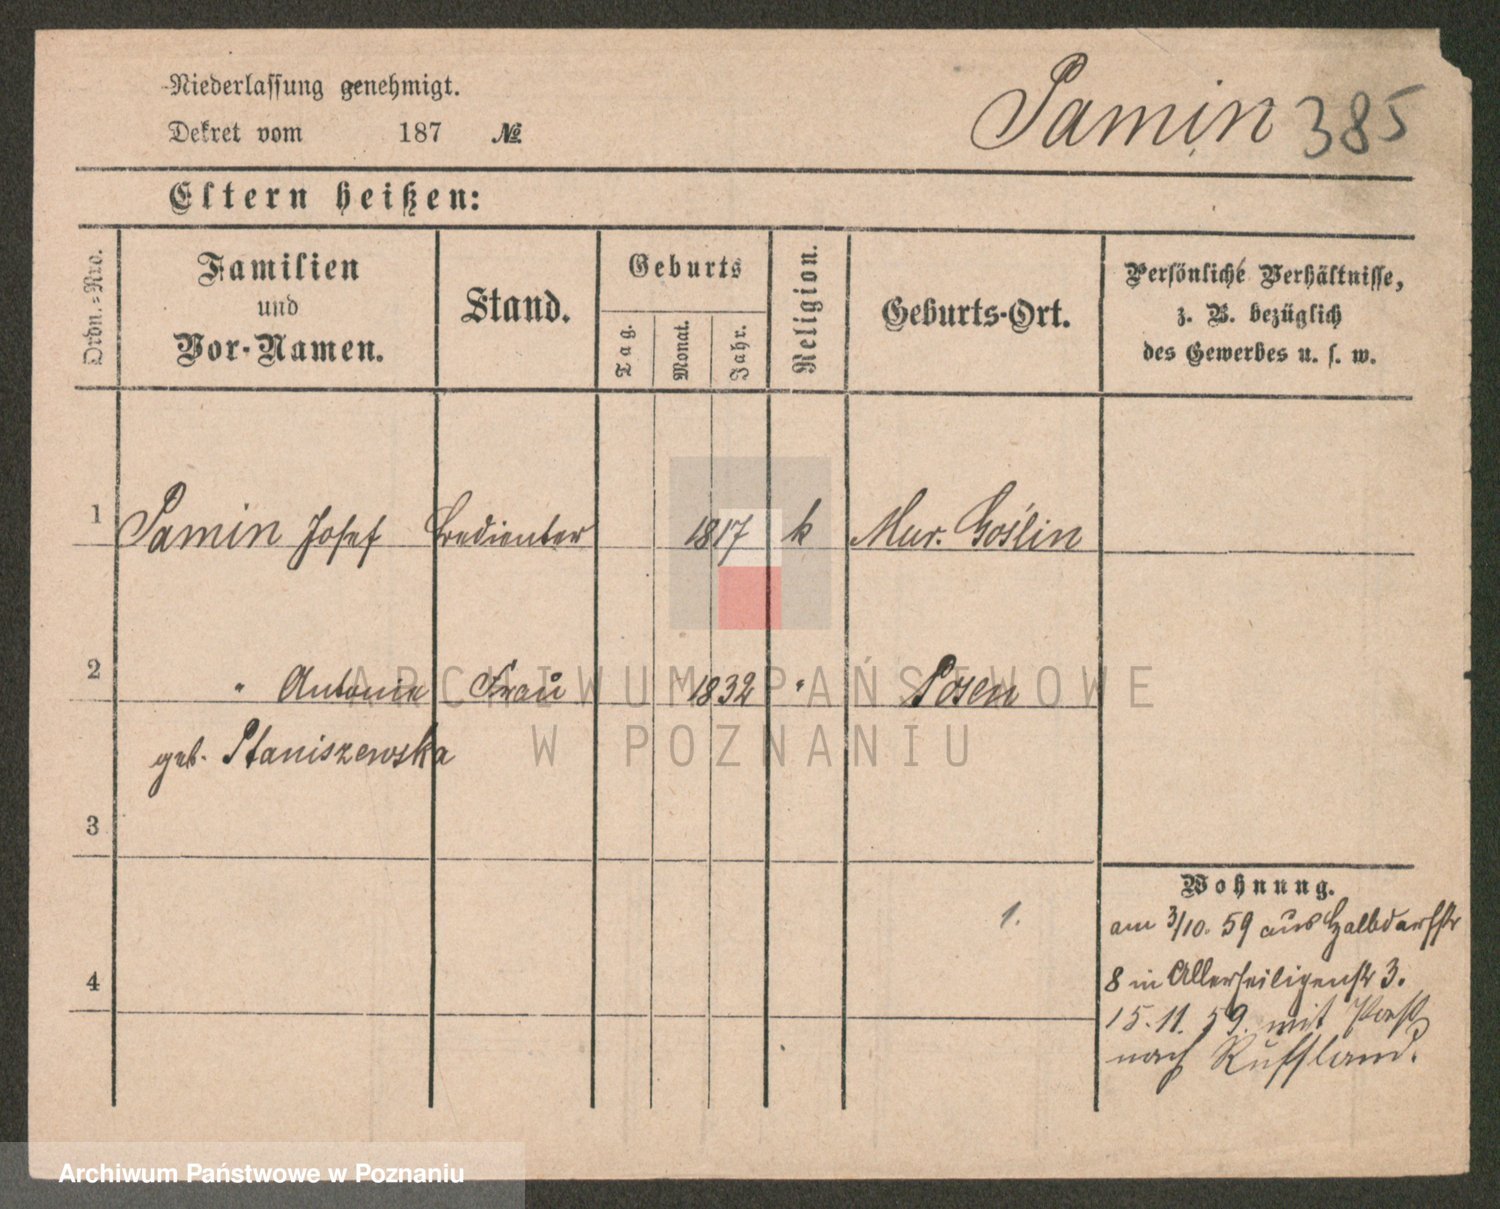 Niederlassung genehmigt.
Dekret vom 187 №
Pamin 385
Eltern heißen:
Ordn.-Nro.
Familien
und
Vor-Namen.
Stand.
Geburts
Tag.
Monat.
Jahr.
Religion.
Geburts-Ort.
Persönliche Verhältnisse,
z. B. bezüglich
des Gewerbes u. s. w.
1 Pamin Josef Bedienter 1817 k Mur. Goślin
2 " Antonie Frau 1832 " Posen
geb. Staniszewska
3
4
1.
Wohnung.
am 3/10. 59 aus Halbdorfstr
8 in Allerheiligenstr 3.
15.11.59. mit Paß
nach Russland.
ARCHIWUM PAŃSTWOWE
W POZNANIU
Archiwum Państwowe w Poznaniu